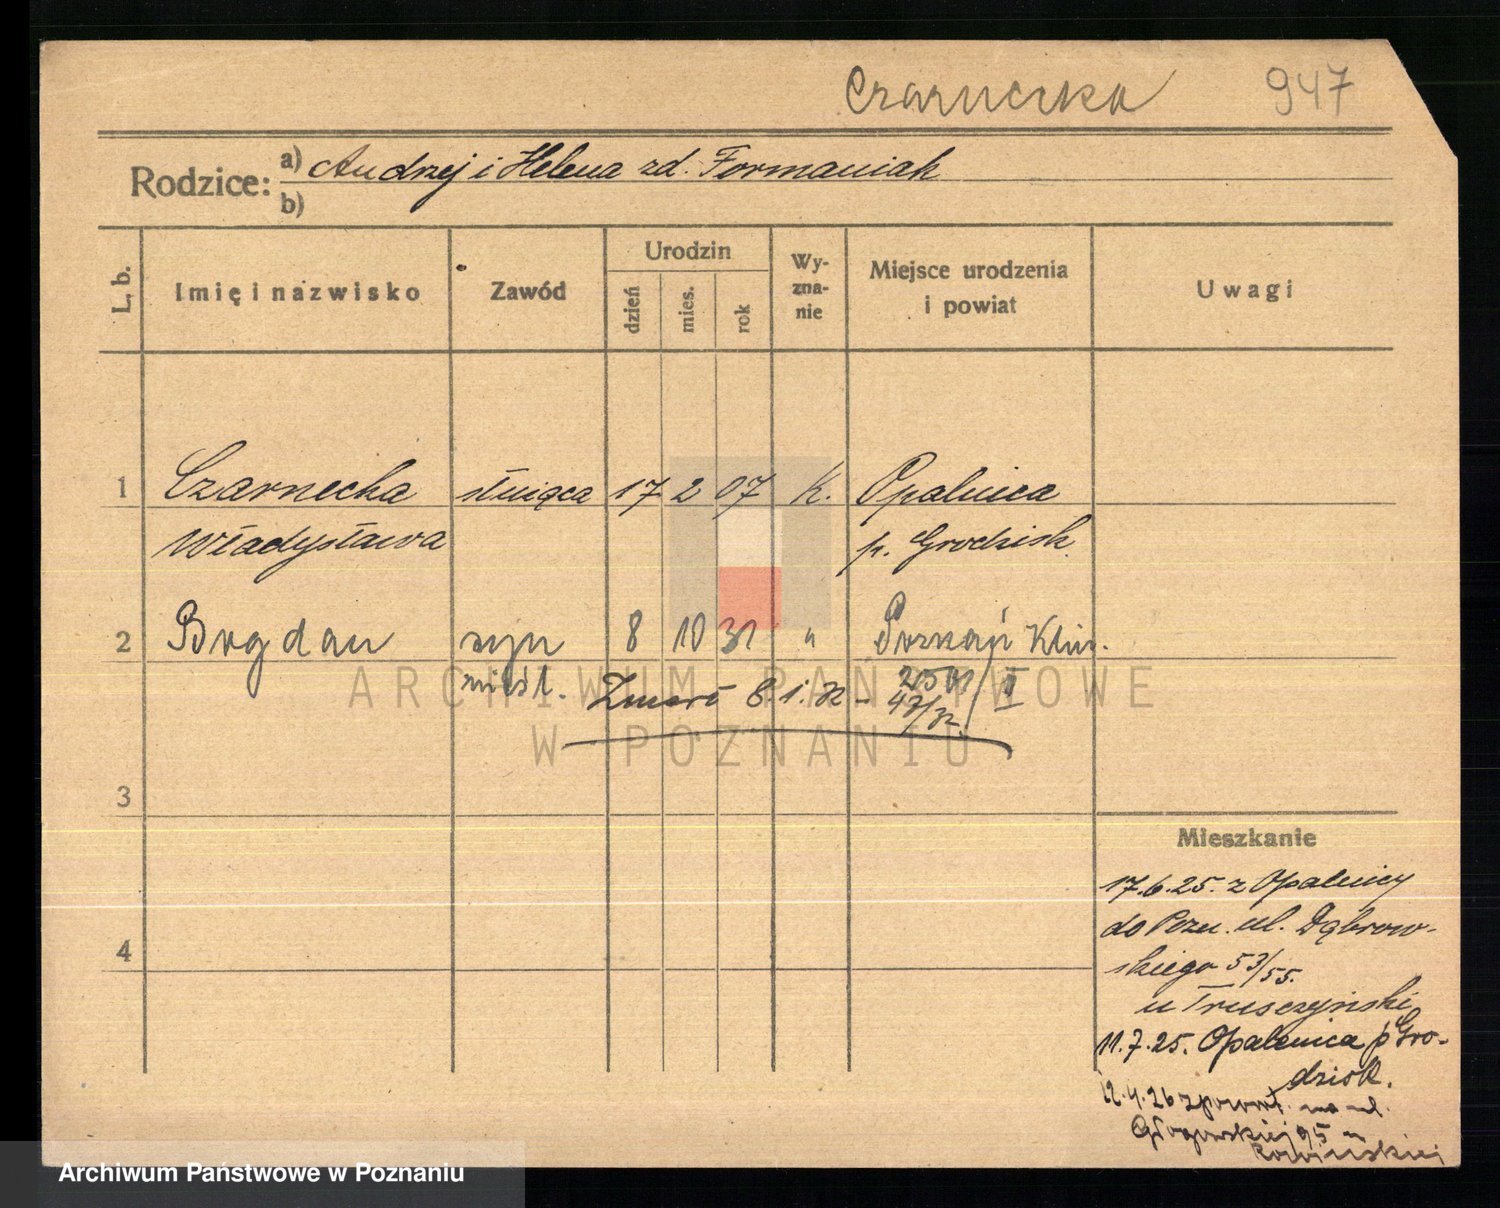 Czarnecka 947
Rodzice: a) Andrzej i Helena zd. Formaniak
b)
L. b.
Imię i nazwisko
Zawód
Urodzin
dzień
mies.
rok
Wy-
zna-
nie
Miejsce urodzenia
i powiat
Uwagi
1 Czarnecka służąca 17 2 07 K. Opalenica
Władysława p. Grodzisk
2 Bogdan syn 8 10 31 " Poznań Klin.
nieśl. Zmarł 6.1.32 - 2501/II
48/32
ARCHIWUM PAŃSTWOWE
W POZNANIU
3
4
Mieszkanie
17.6.25. z Opalenicy
do Pozn. ul. Dąbrow-
skiego 53/55.
u Truszczyński
11.7.25. Opalenica p Gro-
dzisk.
12.4.26 z powrot. na ul.
Głogowskiej 95 u
Archiwum Państwowe w Poznaniu